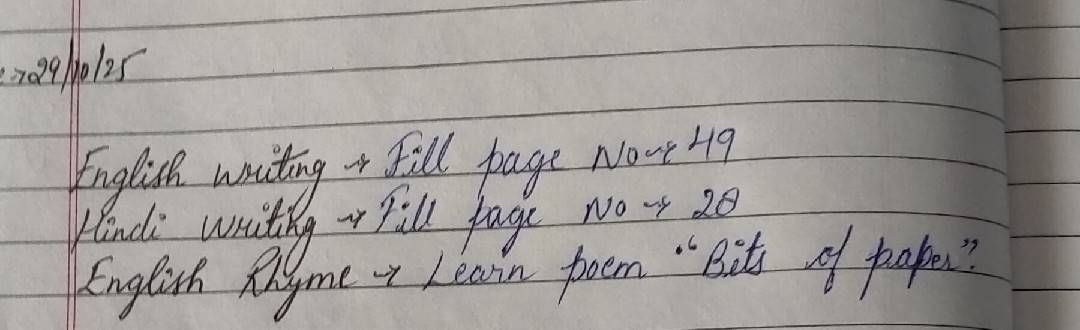 :→29/10/25
English writing → Fill page No → 49
Hindi writing → Fill page No → 28
English Rhyme → Learn poem "Bits of paper".